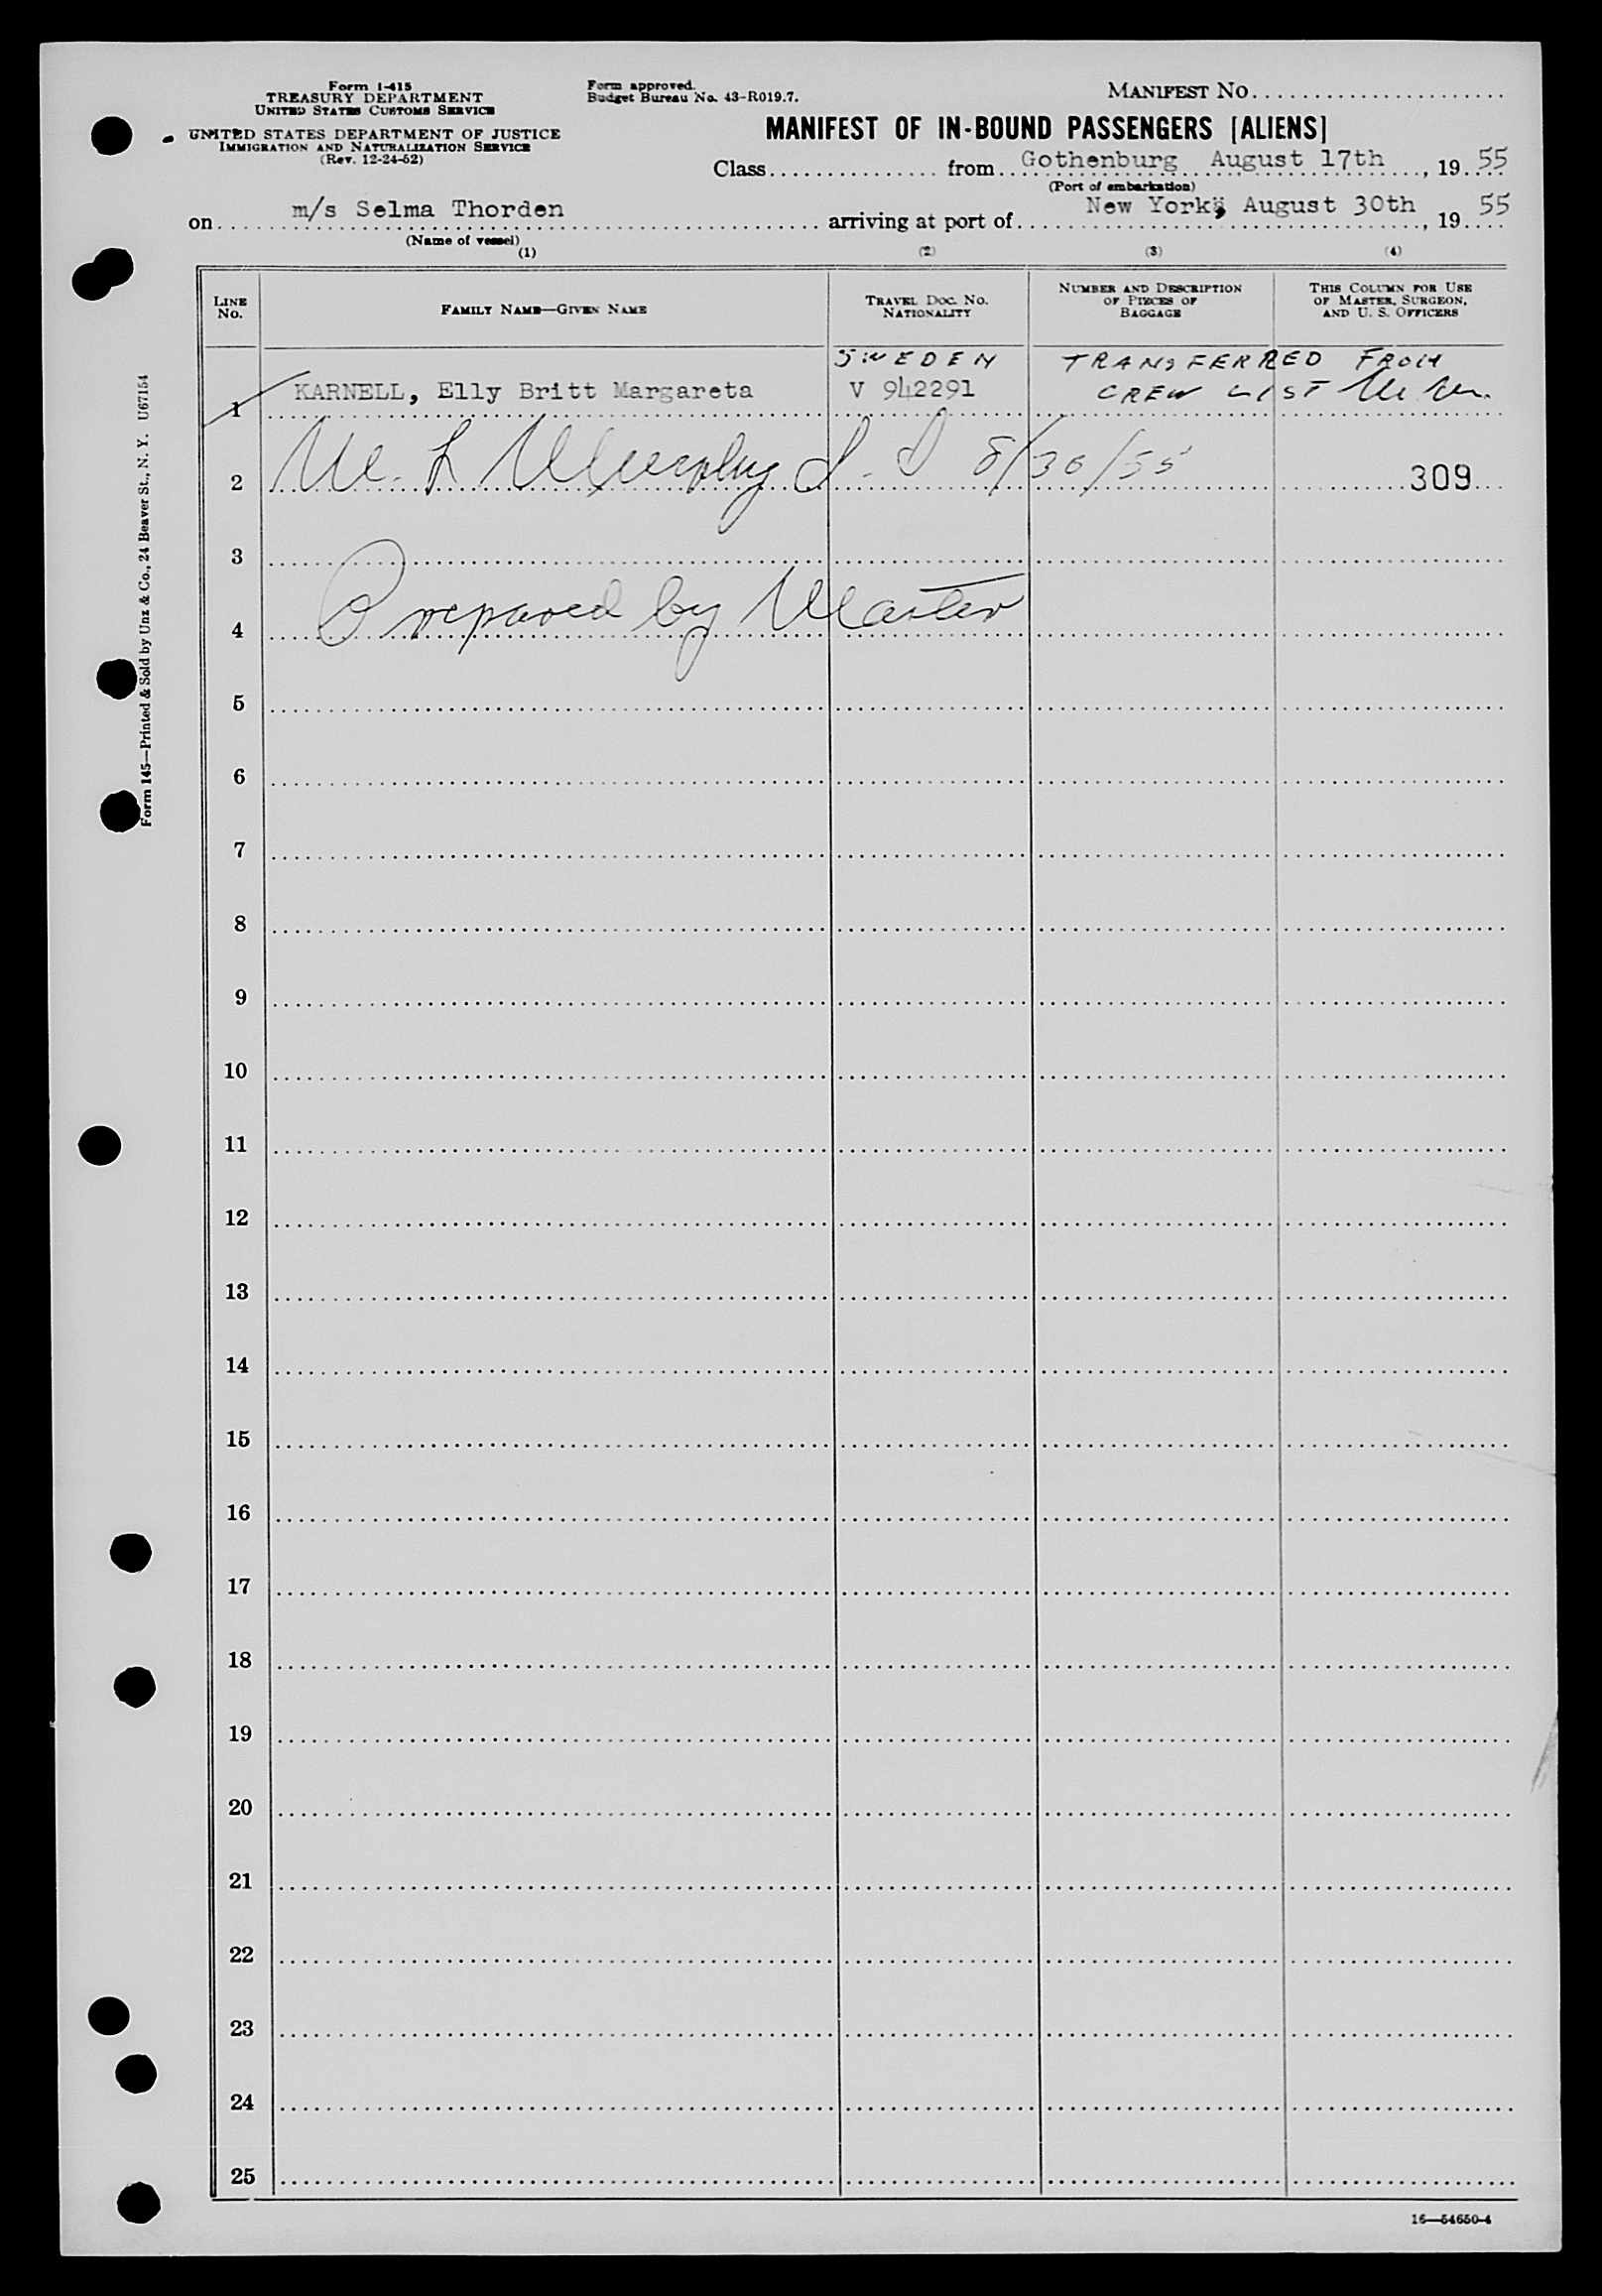 Form I-415
TREASURY DEPARTMENT
UNITED STATES CUSTOMS SERVICE
UNITED STATES DEPARTMENT OF JUSTICE
IMMIGRATION AND NATURALIZATION SERVICE
(Rev. 12-24-52)
Form approved.
Budget Bureau No. 43-R019.7.
MANIFEST NO.
MANIFEST OF IN-BOUND PASSENGERS [ALIENS]
Class from Gothenburg August 17th, 19 55
(Port of embarkation)
on m/s Selma Thorden arriving at port of New York, August 30th, 19 55
(Name of vessel)
(1) (2) (3) (4)
LINE NO.
FAMILY NAME—GIVEN NAME
TRAVEL DOC. NO. NATIONALITY
NUMBER AND DESCRIPTION OF PIECES OF BAGGAGE
THIS COLUMN FOR USE OF MASTER, SURGEON, AND U. S. OFFICERS
SWEDEN TRANSFERRED FROM
1 KARNELL, Elly Britt Margareta V 942291 CREW LIST
2 M. L. Murphy 8/30/55 309
3
4 Prepared by Master
5
6
7
8
9
10
11
12
13
14
15
16
17
18
19
20
21
22
23
24
25
16—54650-4
Form 145—Printed & Sold by Unz & Co., 24 Beaver St., N. Y. U67154